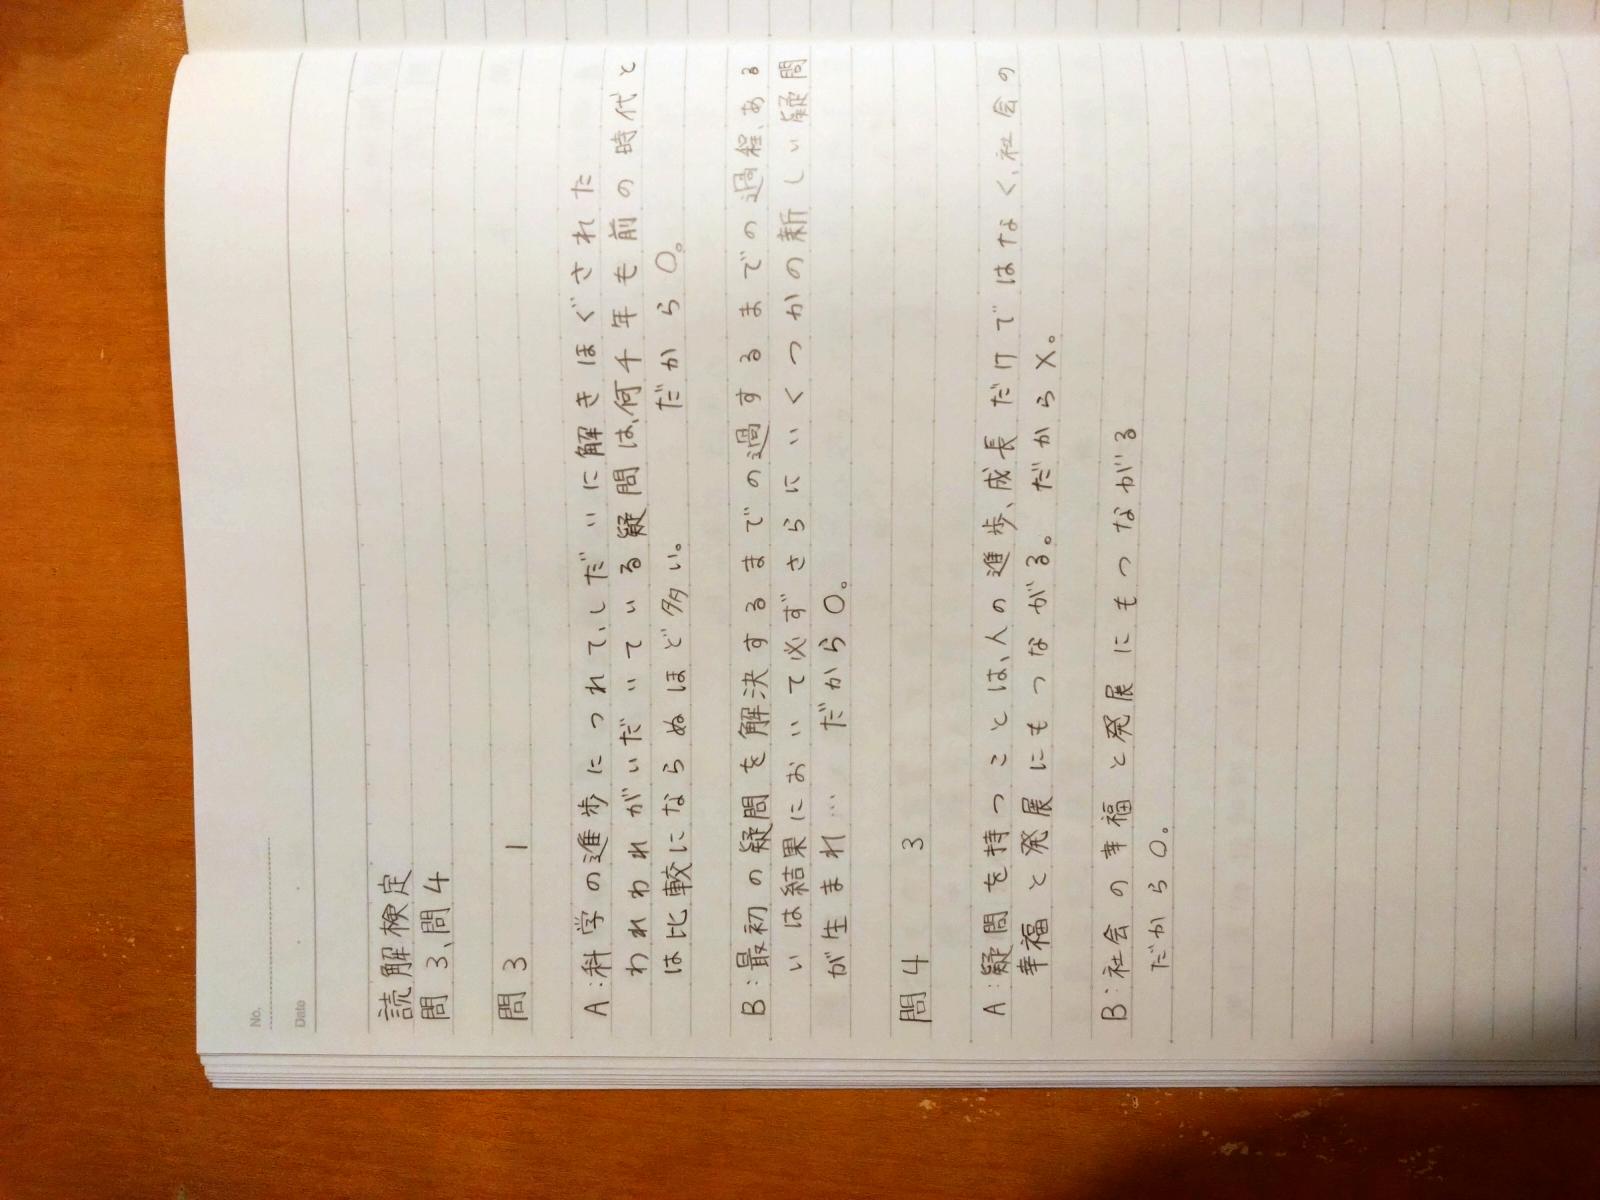 No.
Date
読解検定
問3、問4
問3 1
A:科学の進歩につれて、しだいに解きほぐされた
われわれがいだいている疑問は、何千年も前の時代と
は比較にならぬほど多い。 だから○。
B:最初の疑問を解決するまでの過するまでの過程、ある
いは結果において必ずさらにいくつかの新しい疑問
が生まれ… だから○。
問4 3
A:疑問を持つことは、人の進歩、成長だけではなく、社会の
幸福と発展にもつながる。 だから×。
B:社会の幸福と発展にもつながる
だから○。